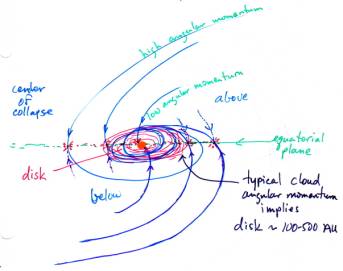 high angular momentum
low angular momentum
center
of
collapse
above
equatorial
plane
disk
below
typical cloud
angular momentum
implies
disk ~ 100-500 AU